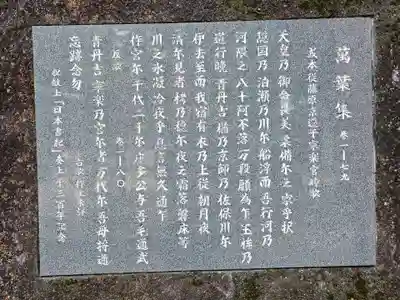 萬葉集 巻一ー七九
或本従藤原京遷于寧楽宮時歌
天皇乃 御命畏美 柔備尓之 家乎択
隠国乃 泊瀬乃川尓 船浮而 吾行河乃
河隈之 八十阿不落 万段 顧為乍 玉桙乃
道行晩 青丹吉 楢乃京師乃 佐保川尓
伊去至而 我宿有 衣乃上従 朝月夜
清尓見者 栲乃穂尓 夜之霜落 磐床等
川之氷凝 冷夜乎 息言無久 通乍
作家尓 千代二手尓 座多公与 吾毛通武
反歌 巻一ー八〇
青丹吉 寧楽乃家尓者 万代尓 吾母将通
忘跡念勿 右歌作主未詳
「日本書紀」奏上千三百年記念